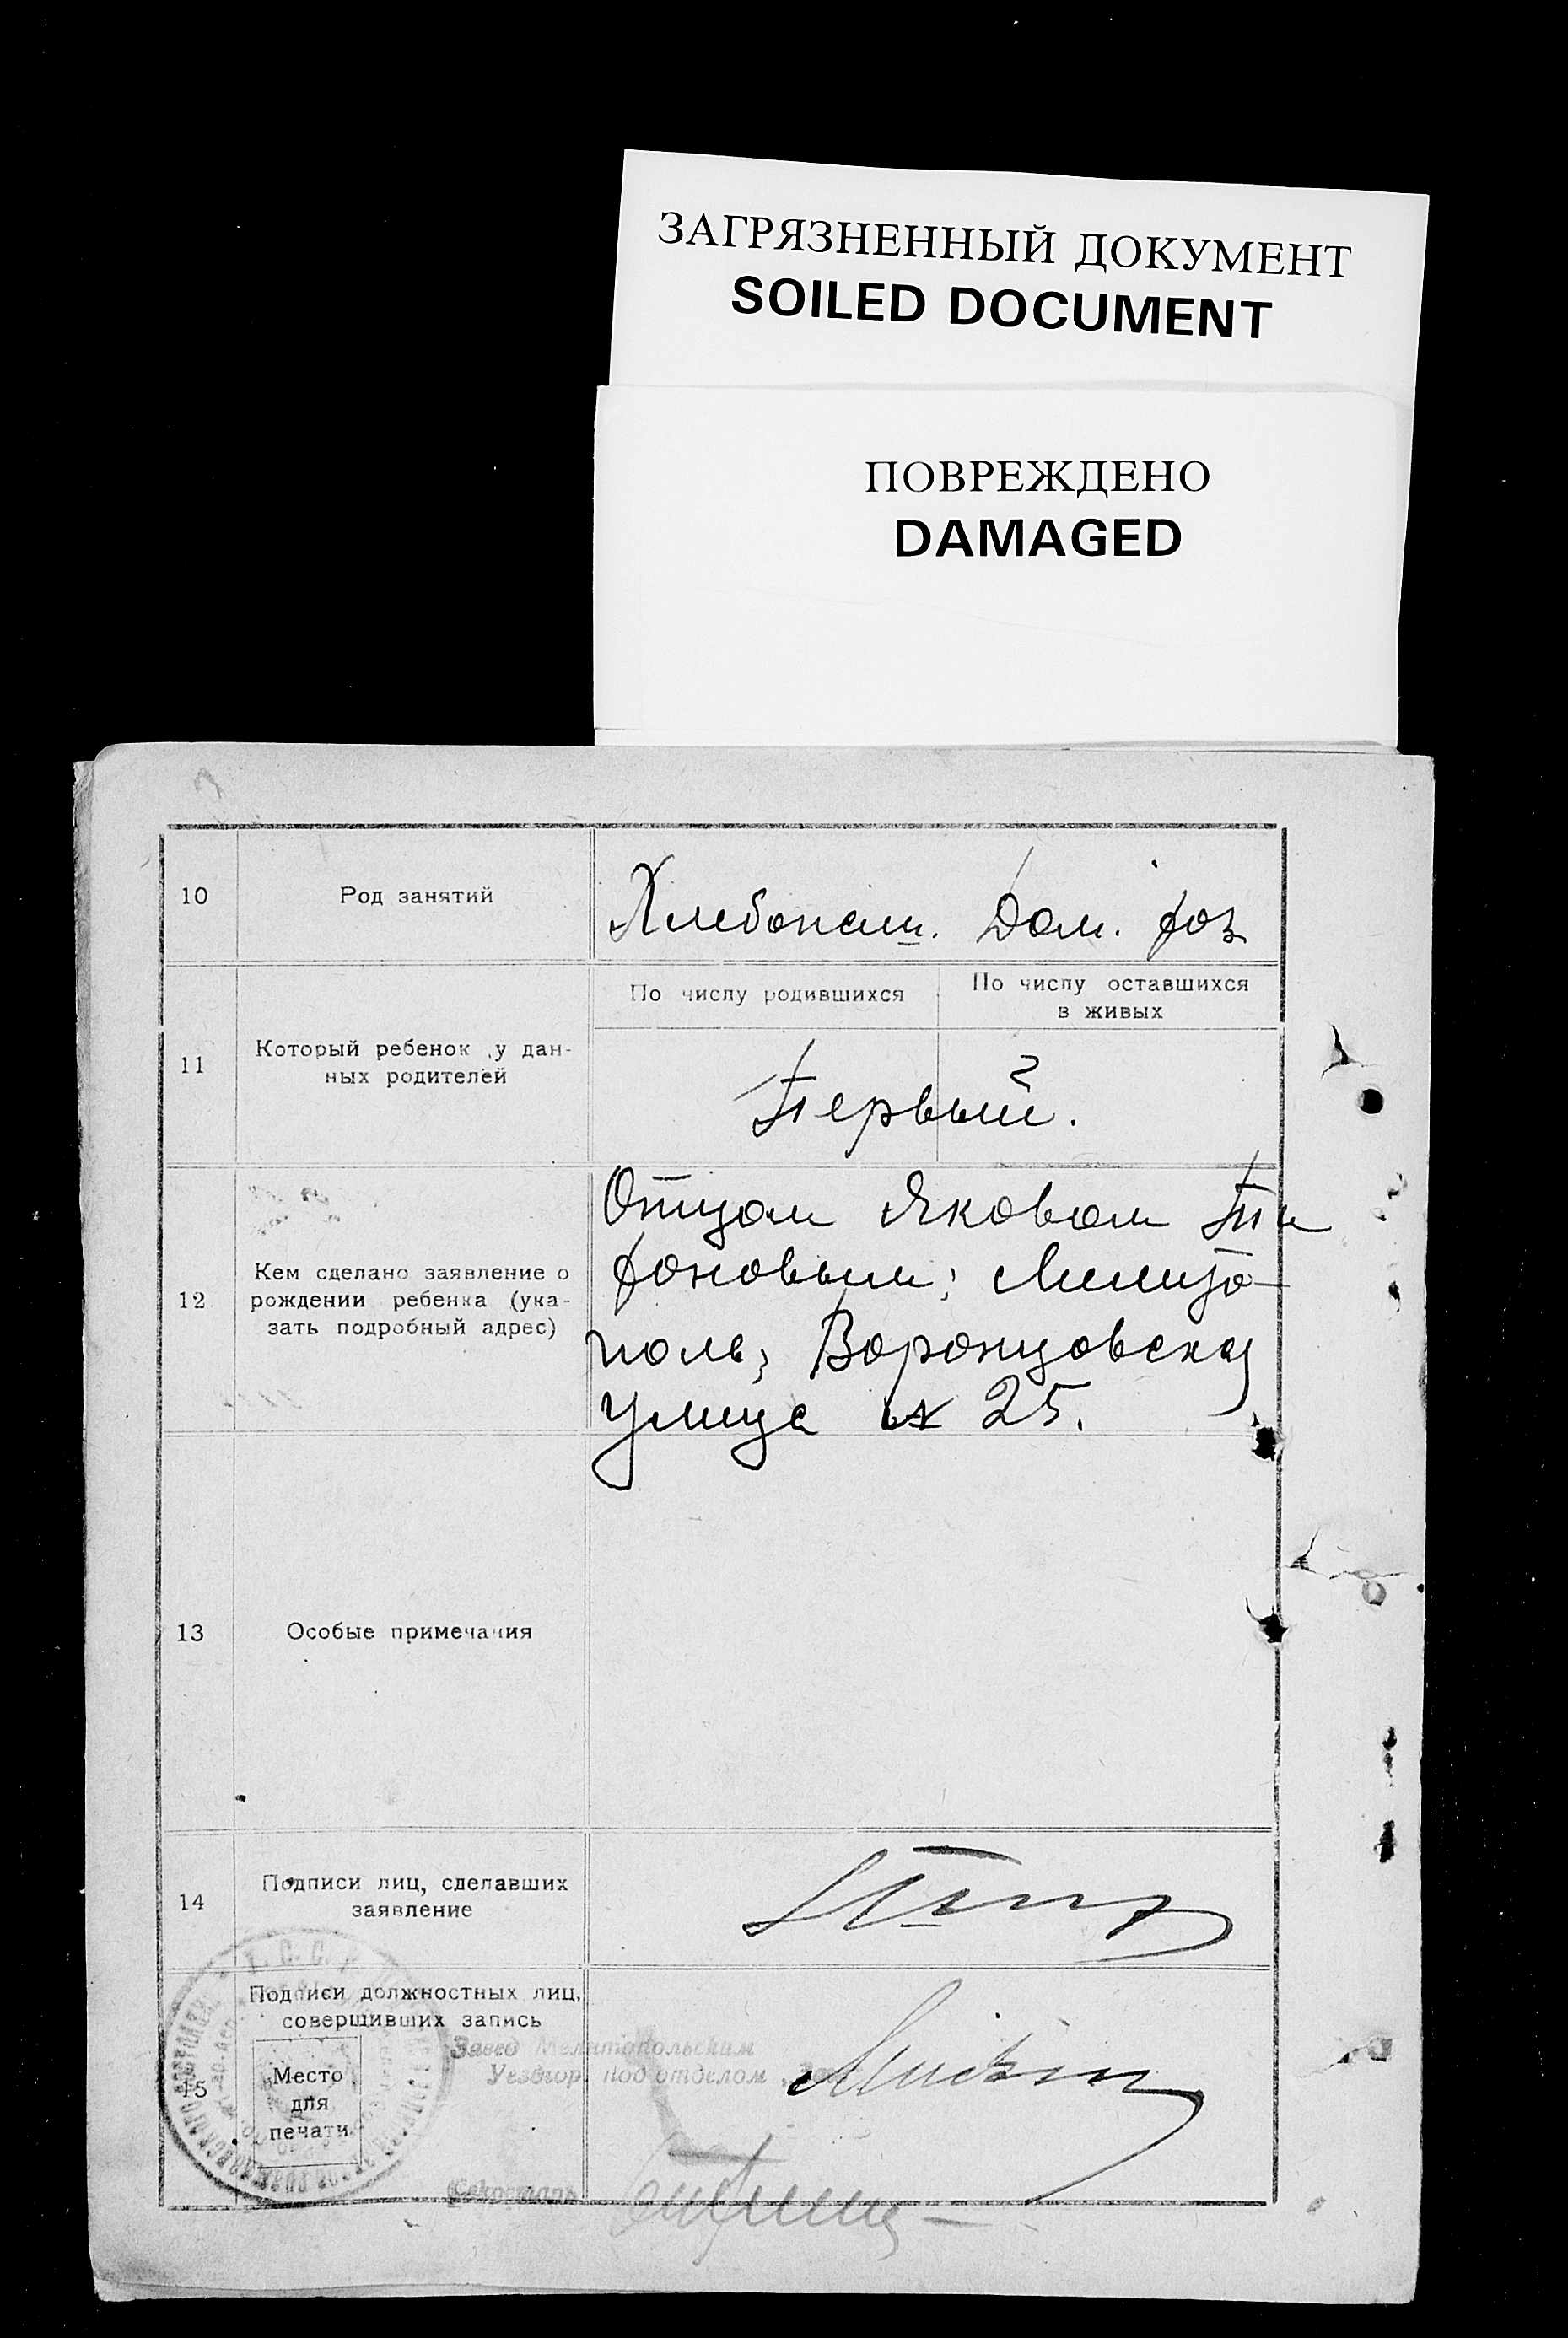 ЗАГРЯЗНЕННЫЙ ДОКУМЕНТ
SOILED DOCUMENT
ПОВРЕЖДЕНО
DAMAGED
10
Род занятий
Хлебопаш. Дом. хоз
11
Который ребенок у дан-
ных родителей
По числу родившихся
По числу оставшихся
в живых
Первый.
12
Кем сделано заявление о
рождении ребенка (ука-
зать подробный адрес)
Отцом Яковом
Мелито-
поль, Воронцовская
улица № 25.
13
Особые примечания
14
Подписи лиц, сделавших
заявление
15
Подписи должностных лиц,
совершивших запись
Место
для
печати
Завед Мелитопольским
Уездгор. подотделом
Секретарь